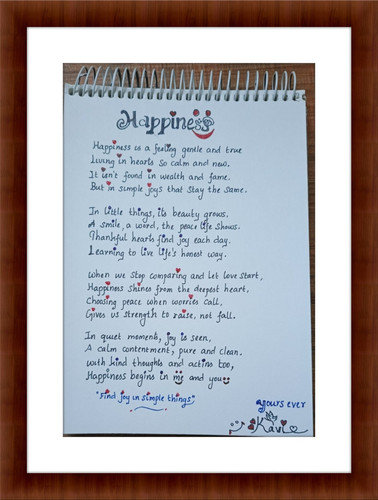 Happiness
Happiness is a feeling gentle and true
Living in hearts so calm and new.
It isn't found in wealth and fame.
But in simple joys that stay the same.
In little things, its beauty grows.
A smile, a word, the peace life shows.
Thankful hearts find joy each day.
Learning to live life's honest way.
When we stop comparing and let love start,
Happiness shines from the deepest heart.
Choosing peace when worries call,
Gives us strength to raise, not fall.
In quiet moments, joy is seen,
A calm contentment, pure and clean.
With kind thoughts and actins too,
Happiness begins in me and you
"Find joy in simple things"
yours ever
Kavi